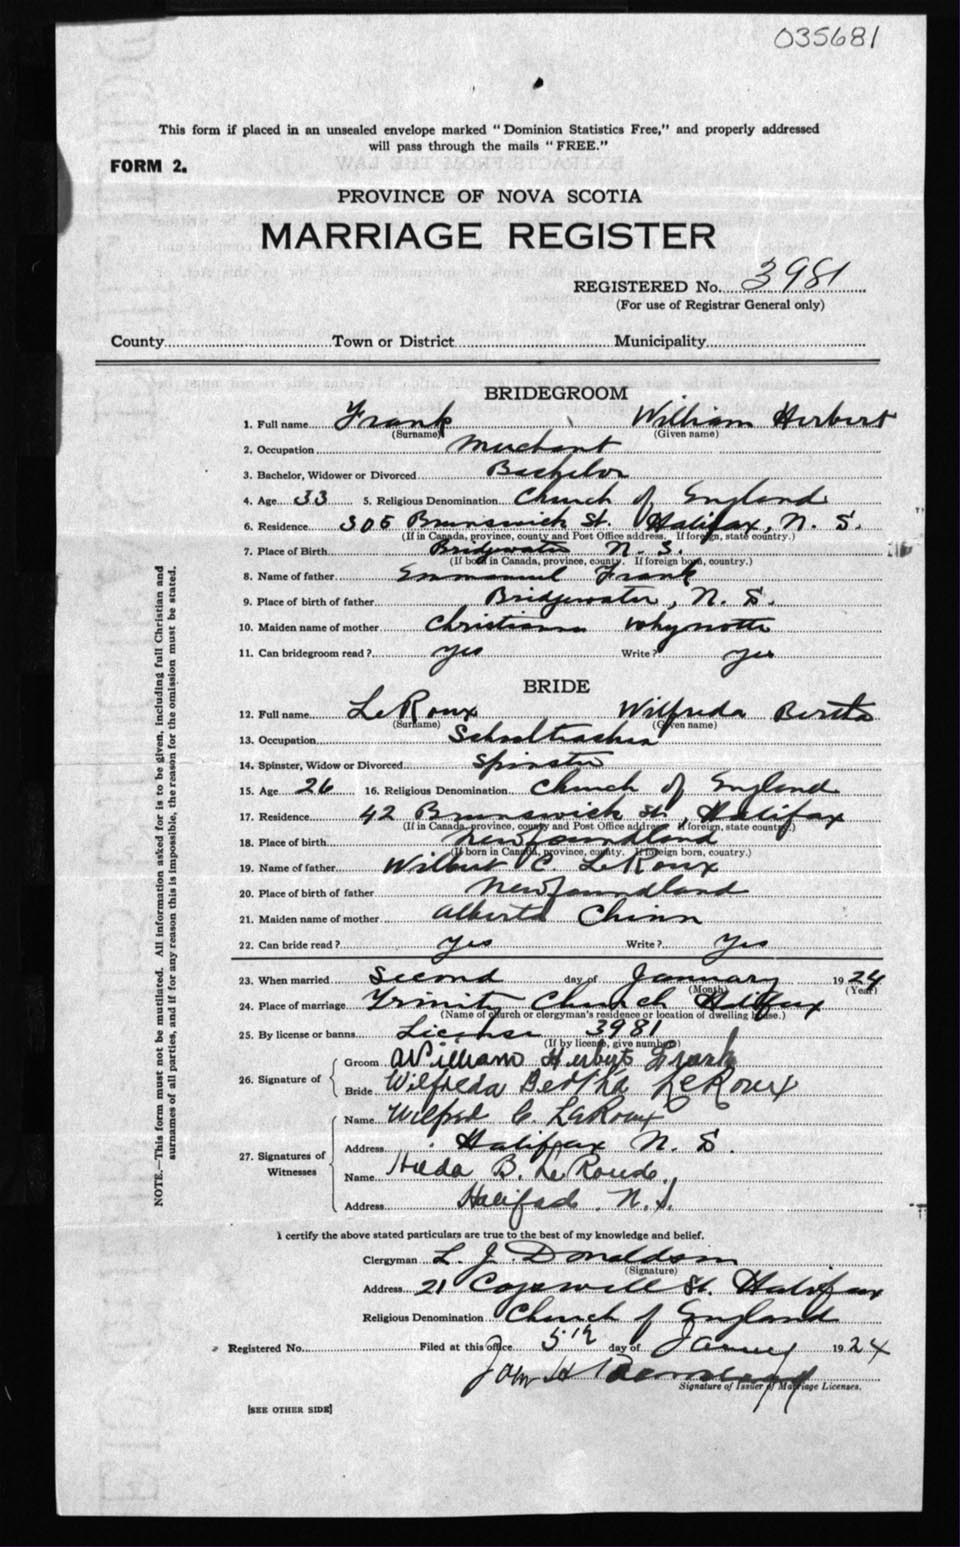 035681
This form if placed in an unsealed envelope marked "Dominion Statistics Free," and properly addressed
will pass through the mails "FREE."
FORM 2.
PROVINCE OF NOVA SCOTIA
MARRIAGE REGISTER
REGISTERED No. 3981
(For use of Registrar General only)
County Town or District Municipality
BRIDEGROOM
1. Full name Frank William Herbert
(Surname) (Given name)
2. Occupation Merchant
3. Bachelor, Widower or Divorced Bachelor
4. Age 33 5. Religious Denomination Church of England
6. Residence 305 Brunswick St. Halifax, N. S.
(If in Canada, province, county and Post Office address. If foreign, state country.)
7. Place of Birth Bridgewater N. S.
(If born in Canada, province, county. If foreign born, country.)
8. Name of father Emmanuel Frank
9. Place of birth of father Bridgewater, N. S.
10. Maiden name of mother Christianna Whynotte
11. Can bridegroom read? yes Write? yes
BRIDE
12. Full name LeRoux Wilfreda Bertha
(Surname) (Given name)
13. Occupation Schoolteacher
14. Spinster, Widow or Divorced Spinster
15. Age 26 16. Religious Denomination Church of England
17. Residence 42 Brunswick St., Halifax
(If in Canada, province, county and Post Office address. If foreign, state country.)
18. Place of birth Newfoundland
(If born in Canada, province, county. If foreign born, country.)
19. Name of father Wilbert C. LeRoux
20. Place of birth of father Newfoundland
21. Maiden name of mother Alberta Chinn
22. Can bride read? yes Write? yes
23. When married Second day of January 1924
(Month) (Year)
24. Place of marriage Trinity Church Halifax
(Name of church or clergyman's residence or location of dwelling house.)
25. By license or banns License 3981
(If by license, give number)
26. Signature of Groom William Herbert Frank
Bride Wilfreda Bertha LeRoux
27. Signatures of Witnesses Name Wilfred C. LeRoux
Address Halifax N. S.
Name Hilda B. LeRoux.
Address Halifax. N.S.
I certify the above stated particulars are true to the best of my knowledge and belief.
Clergyman L. J. Donaldson
(Signature)
Address 21 Cogswell St. Halifax
Religious Denomination Church of England
Registered No. Filed at this office 5th day of January 1924
John H
Signature of Issuer of Marriage Licenses.
[SEE OTHER SIDE]
NOTE.—This form must not be mutilated. All information asked for is to be given, including full Christian and
surnames of all parties, and if for any reason this is impossible, the reason for the omission must be stated.